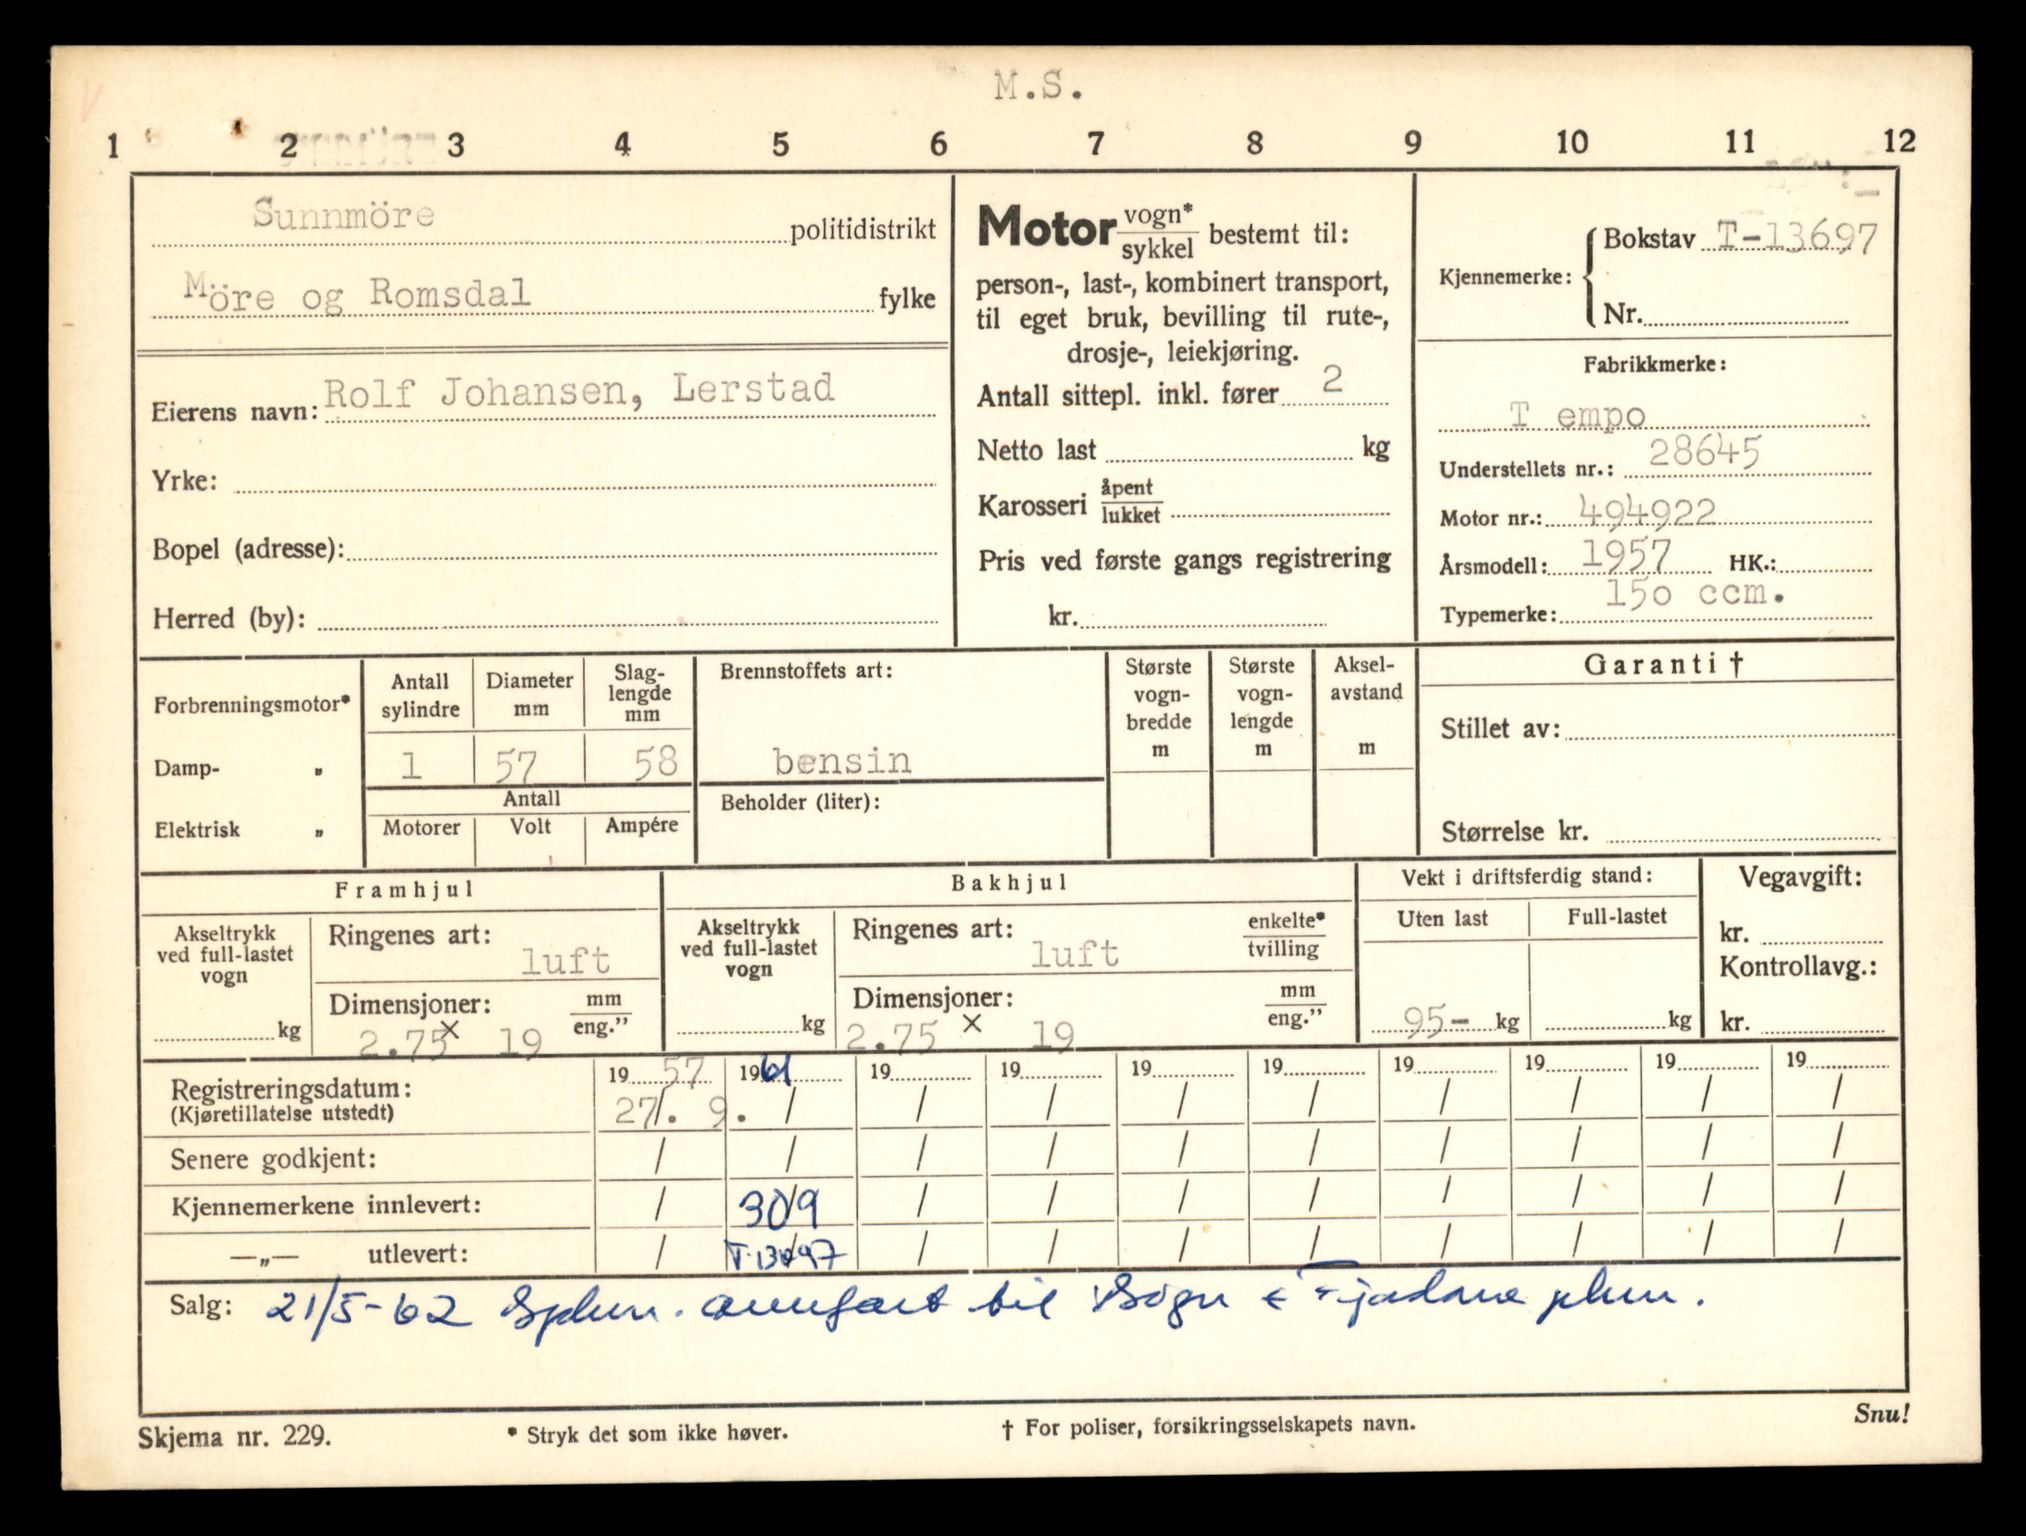 M.S.
1 2 3 4 5 6 7 8 9 10 11 12
Sunnmöre politidistrikt
Möre og Romsdal fylke
Eierens navn: Rolf Johansen, Lerstad
Yrke:
Bopel (adresse):
Herred (by):
Motor vogn* / sykkel bestemt til:
person-, last-, kombinert transport,
til eget bruk, bevilling til rute-,
drosje-, leiekjøring.
Antall sittepl. inkl. fører 2
Netto last kg
Karosseri åpent / lukket
Pris ved første gangs registrering
kr.
Kjennemerke: Bokstav T-13697
Nr.
Fabrikkmerke:
T empo
Understellets nr.: 28645
Motor nr.: 494922
Årsmodell: 1957 HK.:
Typemerke: 150 ccm.
Forbrenningsmotor*
Damp- „
Elektrisk „
Antall sylindre
Diameter mm
Slag-lengde mm
1 57 58
Antall
Motorer Volt Ampére
Brennstoffets art:
bensin
Beholder (liter):
Største vogn-bredde m
Største vogn-lengde m
Aksel-avstand m
Garanti †
Stillet av:
Størrelse kr.
Framhjul
Akseltrykk ved full-lastet vogn
kg
Ringenes art: luft
Dimensjoner: mm / eng.”
2.75 x 19
Bakhjul
Akseltrykk ved full-lastet vogn
kg
Ringenes art: luft enkelte* / tvilling
Dimensjoner: mm / eng.”
2.75 x 19
Vekt i driftsferdig stand:
Uten last Full-lastet
95- kg kg
Vegavgift:
kr.
Kontrollavg.:
kr.
19 57 19 61 19 19 19 19 19 19 19 19
Registreringsdatum: 27/. 9. / / / / / / / / /
(Kjøretillatelse utstedt)
Senere godkjent: / / / / / / / / / /
Kjennemerkene innlevert: / 30/9 / / / / / / / /
—„— utlevert: / / / / / / / / /
Salg: 21/5-62 til Sogn & Fjordane
Skjema nr. 229.
* Stryk det som ikke høver.
† For poliser, forsikringsselskapets navn.
Snu!